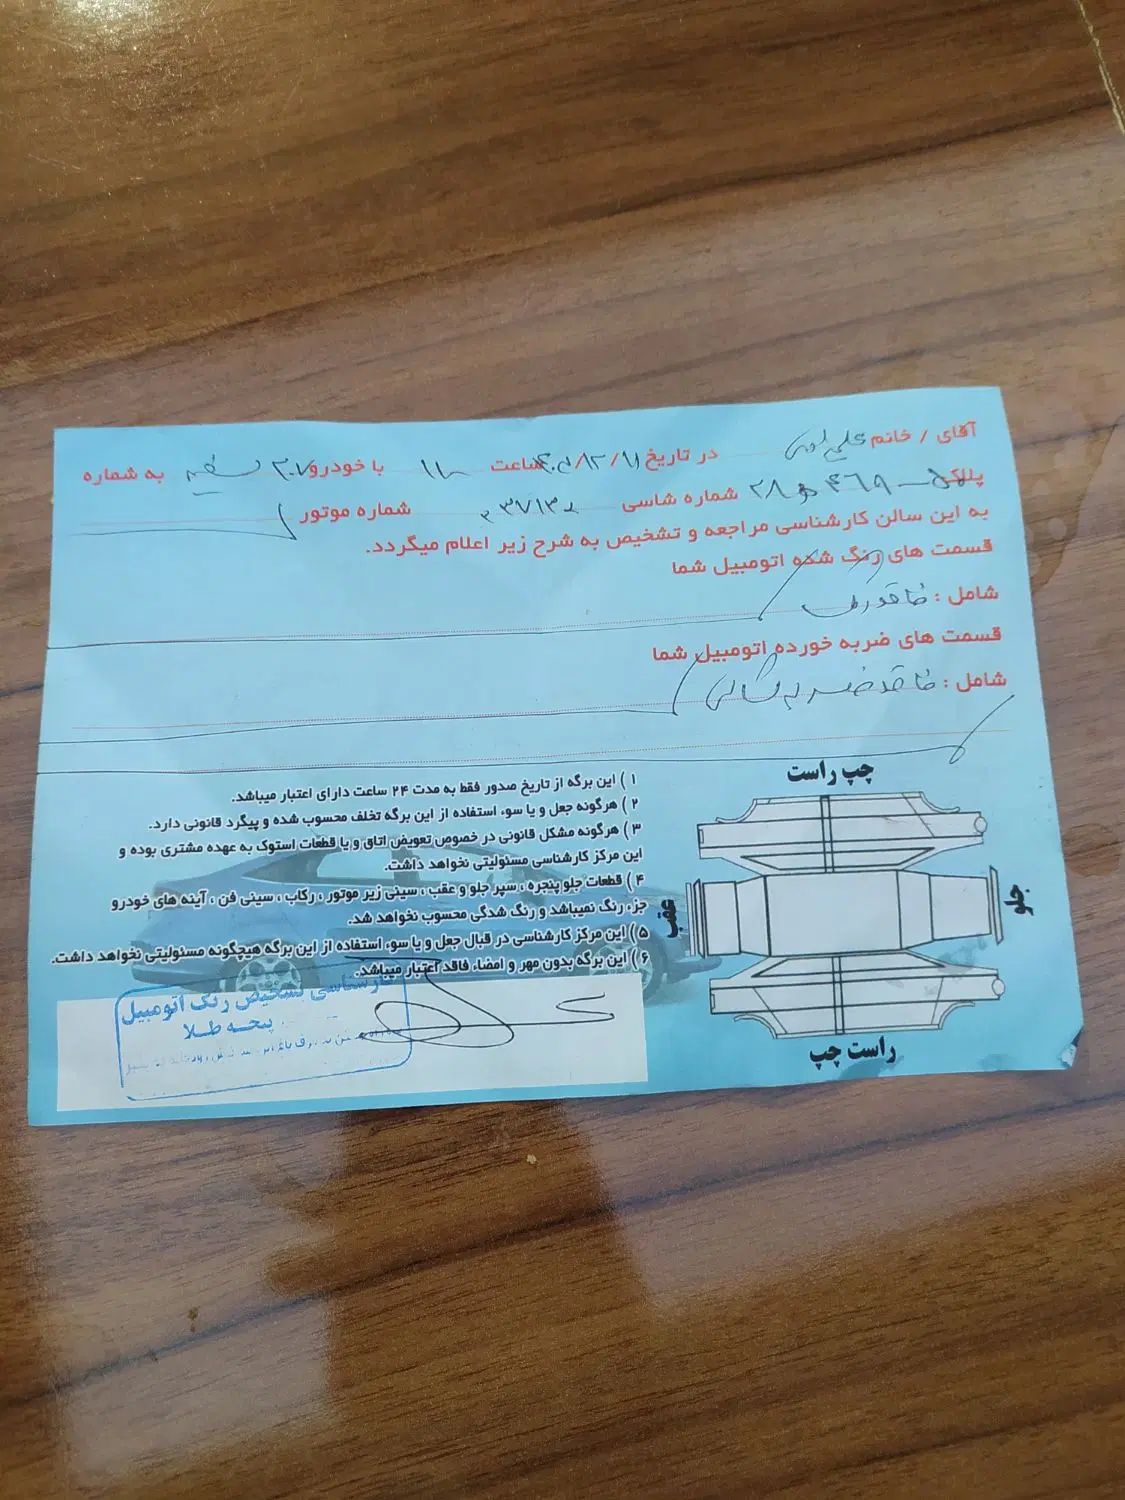 آقای / خانم علی در تاریخ ساعت ۱۱ با خودرو ۲۰۷ سفید به شماره
پلاک ۲۸ ۴۶۹ شماره شاسی ۳۷۱۳ شماره موتور
به این سالن کارشناسی مراجعه و تشخیص به شرح زیر اعلام میگردد.
قسمت های رنگ شده اتومبیل شما
شامل : فاقد رنگ
قسمت های ضربه خورده اتومبیل شما
شامل : فاقد ضربه
۱ ) این برگه از تاریخ صدور فقط به مدت ۲۴ ساعت دارای اعتبار میباشد.
۲ ) هرگونه جعل و یا سوء استفاده از این برگه تخلف محسوب شده و پیگرد قانونی دارد.
۳ ) هرگونه مشکل قانونی در خصوص تعویض اتاق و یا قطعات استوک به عهده مشتری بوده و
این مرکز کارشناسی مسئولیتی نخواهد داشت.
۴ ) قطعات جلو پنجره ، سپر جلو و عقب ، سینی زیر موتور ، رکاب ، سینی فن ، آینه های خودرو
جزء رنگ نمیباشد و رنگ شدگی محسوب نخواهد شد.
۵ ) این مرکز کارشناسی در قبال جعل و یا سوء استفاده از این برگه هیچگونه مسئولیتی نخواهد داشت.
۶ ) این برگه بدون مهر و امضاء فاقد اعتبار میباشد.
چپ راست
عقب
جلو
راست چپ
کارشناسی تشخیص رنگ اتومبیل
پنجه طلا